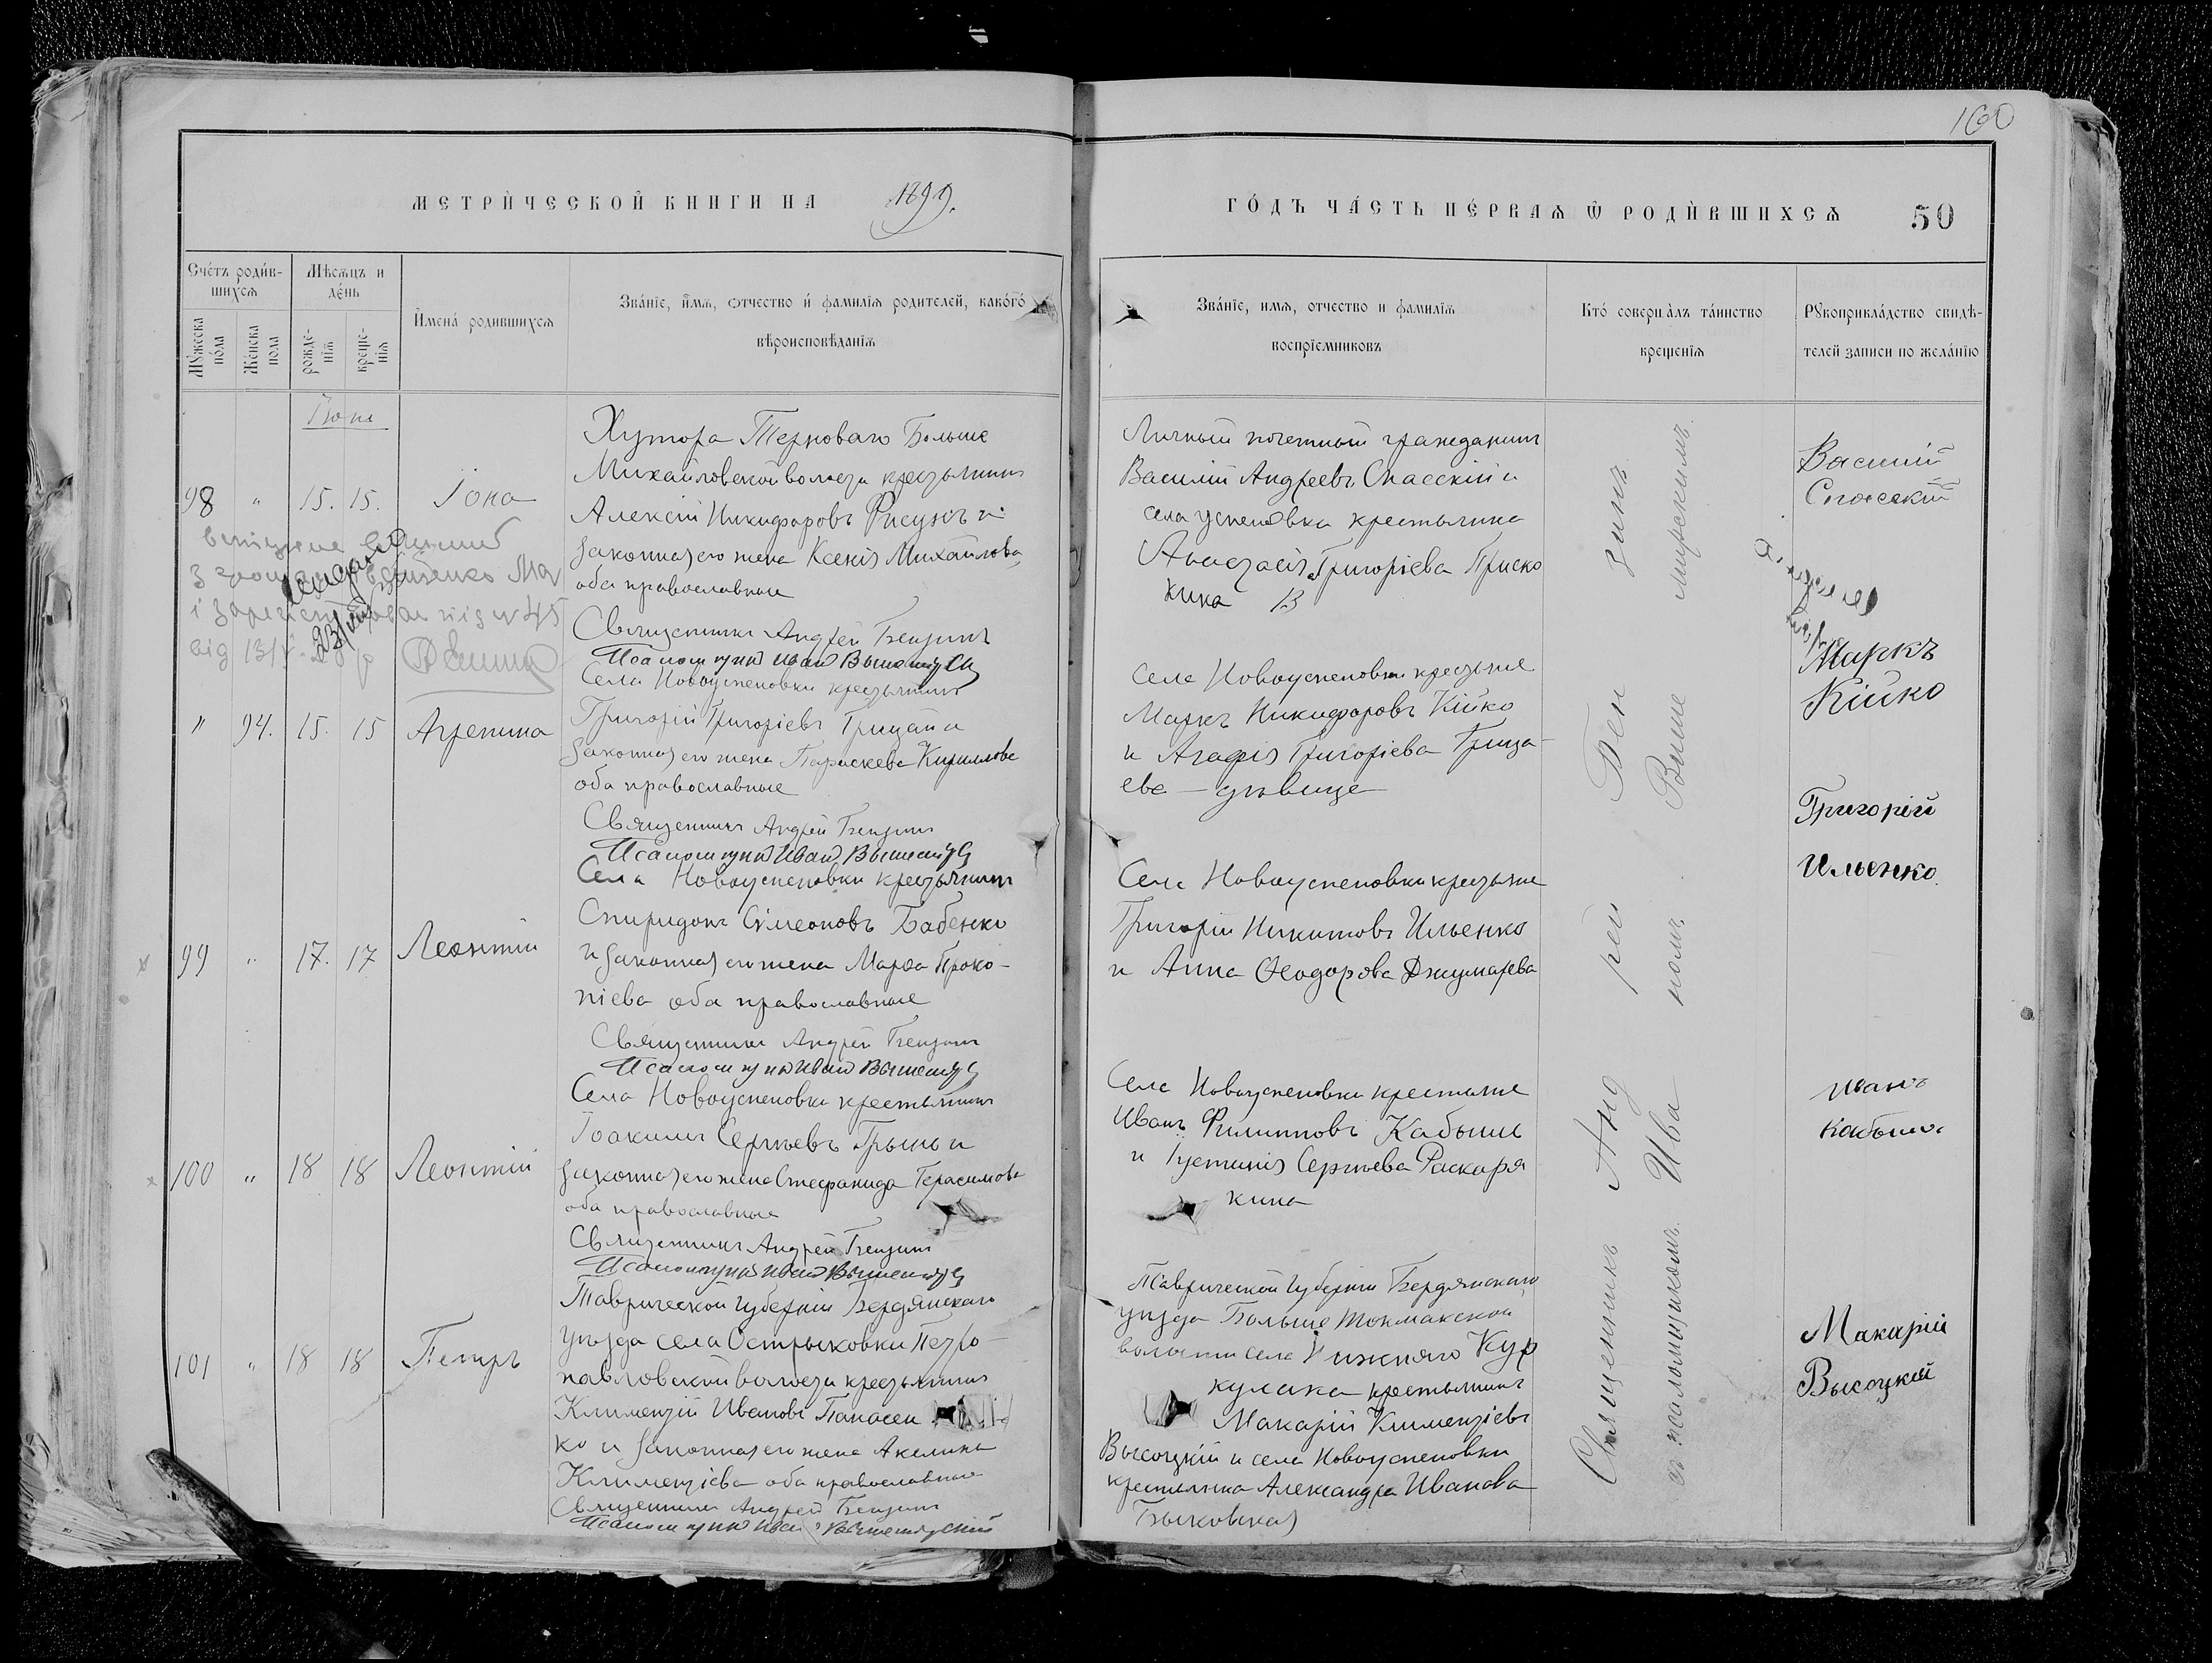 160
МЕТРИ́ЧЕСКОЙ КНИГИ НА 1899.
ГО́ДЪ ЧА́СТЬ ПЕ́РВАѦ Ѿ РОДИ́ВШИХСѦ 50
Сче́тъ роди́в-
шихсѧ
Мꙋ́жеска
по́ла
Же́нска
пола
Мѣсѧцъ и
де́нь
рожде-
нїѧ
креще-
нїѧ
И҆мена́ родившихсѧ
Зва́нїе, и҆мѧ, ѻтчество и҆ фамилїѧ родителей, како́гѡ
вѣроисповѣданїѧ
Зва́нїе, имѧ, отчество и фамилїѧ
воспрїемниковъ
Кто́ соверша́лъ та́инство
крещенїѧ
Рꙋкоприкла́дство свидѣ-
телей записи по жела́нїю
Іюнь
98 " 15. 15. Іона
Хутора Терноваго Больше
Михайловской волости крестьянинъ
Алексій Никифоровъ Рисунъ и
законная его жена Ксенія Михайлова,
оба православные
Священникъ Андрей Бензинъ
Псаломщикъ Иванъ Вышемірскій
Личный почетный гражданинъ
Василій Андреевъ Спасскій и
села Успеновки крестьянка
Анастасія Григоріева Приско
кина
Василій
Спасскій
і зареєстрован під № 45
від 13/V
" 94. 15. 15 Агрепина
Села Новоуспеновки крестьянинъ
Григорій Григоріевъ Грицай и
законная его жена Параскева Кириллова
оба православные
Священникъ Андрей Бензинъ
Псаломщикъ Иванъ Вышемірскій
Села Новоуспеновки крестьяне
Маркъ Никифоровъ Кійко
и Агафія Григоріева Грица-
ева — дѣвица
Маркъ
Кійко
99 " 17. 17 Леонтій
Села Новоуспеновки крестьянинъ
Спиридонъ Симеоновъ Бабенко
и законная его жена Марѳа Проко-
піева оба православные
Священникъ Андрей Бензинъ
Псаломщикъ Иванъ Вышемірскій
Села Новоуспеновки крестьяне
Григорій Никитовъ Ильенко
и Анна Ѳеодорова Джумаева
Григорій
Ильенко
100 " 18 18 Леонтій
Села Новоуспеновки крестьянинъ
Іоакимъ Сергѣевъ Грынь и
законная его жена Стефанида Герасимова
оба православные
Священникъ Андрей Бензинъ
Псаломщикъ Иванъ Вышемірскій
Села Новоуспеновки крестьяне
Иванъ Филипповъ Кабышъ
и Іустинія Сергѣева Раскаря
кина
Иванъ
Кабышъ
101 " 18 18 Петръ
Таврической губерніи Бердянскаго
уѣзда села Остриковки Петро-
павловской волости крестьянинъ
Климентій Ивановъ Панасен
ко и законная его жена Акилина
Климентіева оба православные
Священникъ Андрей Бензинъ
Псаломщикъ Иванъ Вышемірскій
Таврической губерніи Бердянскаго
уѣзда Больше Токмакской
волости села Нижняго Кур
кулака крестьянинъ
Макарій Климентіевъ
Высоцкій и села Новоуспеновки
крестьянка Александра Иванова
Быковская
Макарій
Высоцкій
Священникъ Андрей Бензинъ
съ псаломщикомъ Иваномъ Вышемірскимъ.